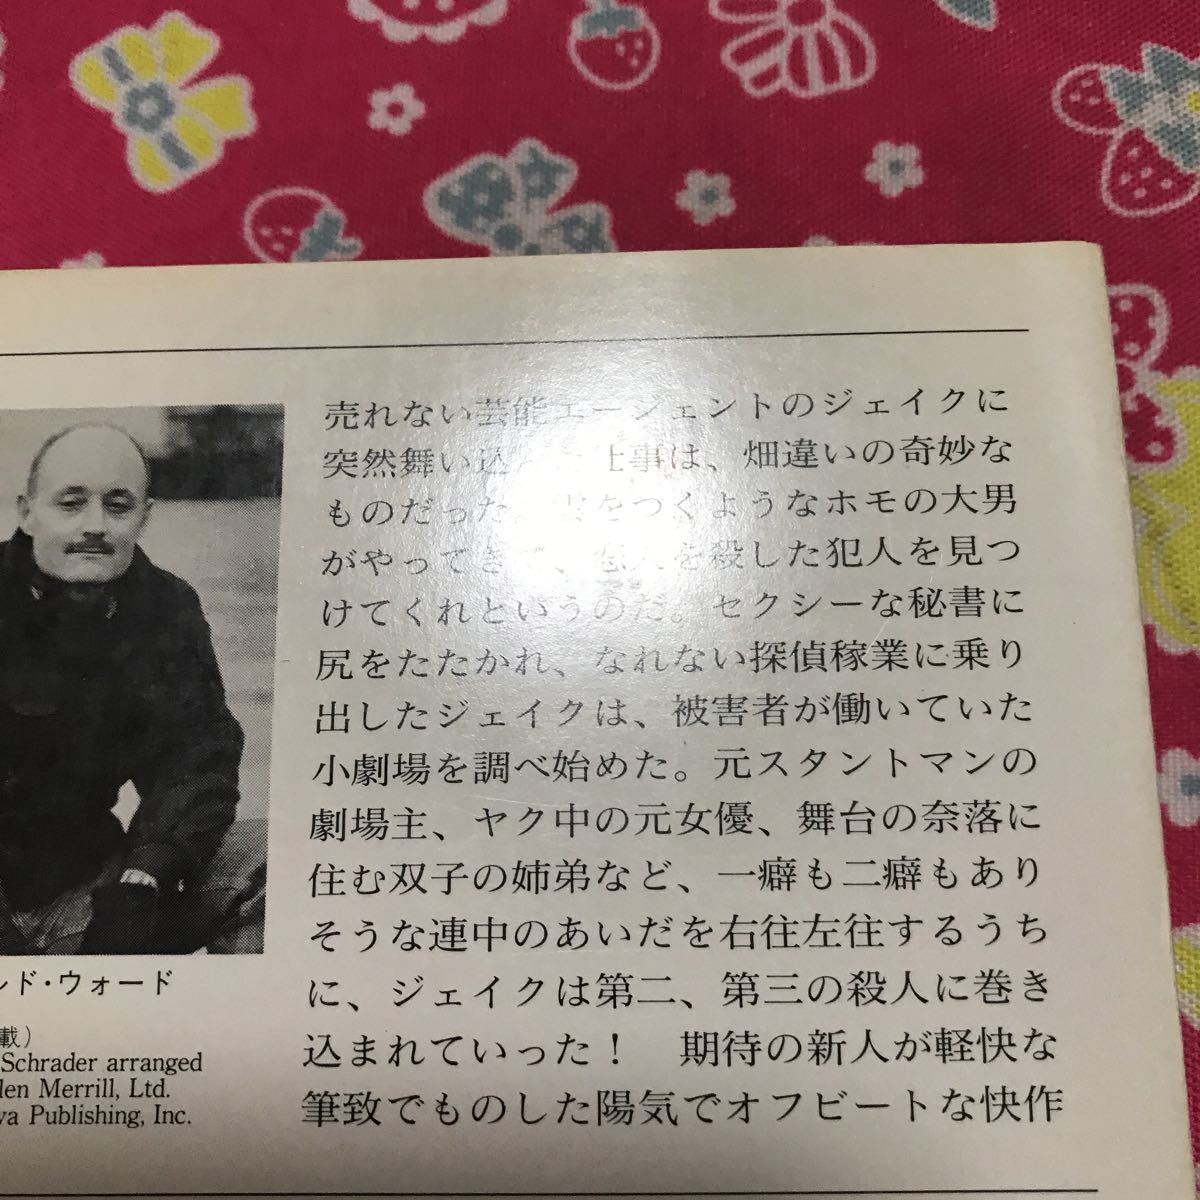 売れない芸能エージェントのジェイクに
突然舞い込 仕事は、畑違いの奇妙な
ものだった をつくようなホモの大男
がやってきて、恋人を殺した犯人を見つ
けてくれというのだ。セクシーな秘書に
尻をたたかれ、なれない探偵稼業に乗り
出したジェイクは、被害者が働いていた
小劇場を調べ始めた。元スタントマンの
劇場主、ヤク中の元女優、舞台の奈落に
住む双子の姉弟など、一癖も二癖もあり
そうな連中のあいだを右往左往するうち
に、ジェイクは第二、第三の殺人に巻き
込まれていった！　期待の新人が軽快な
筆致でものした陽気でオフビートな快作
ンド・ウォード
載）
Schrader arranged
len Merrill, Ltd.
wa Publishing, Inc.